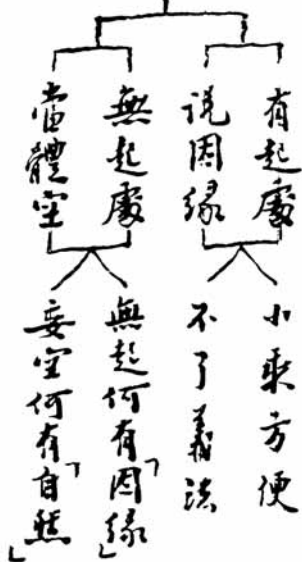 有起處
説因緣
無起處
當體空
小乘方便
不了義法
無起何有「因緣」
妄空何有「自然」